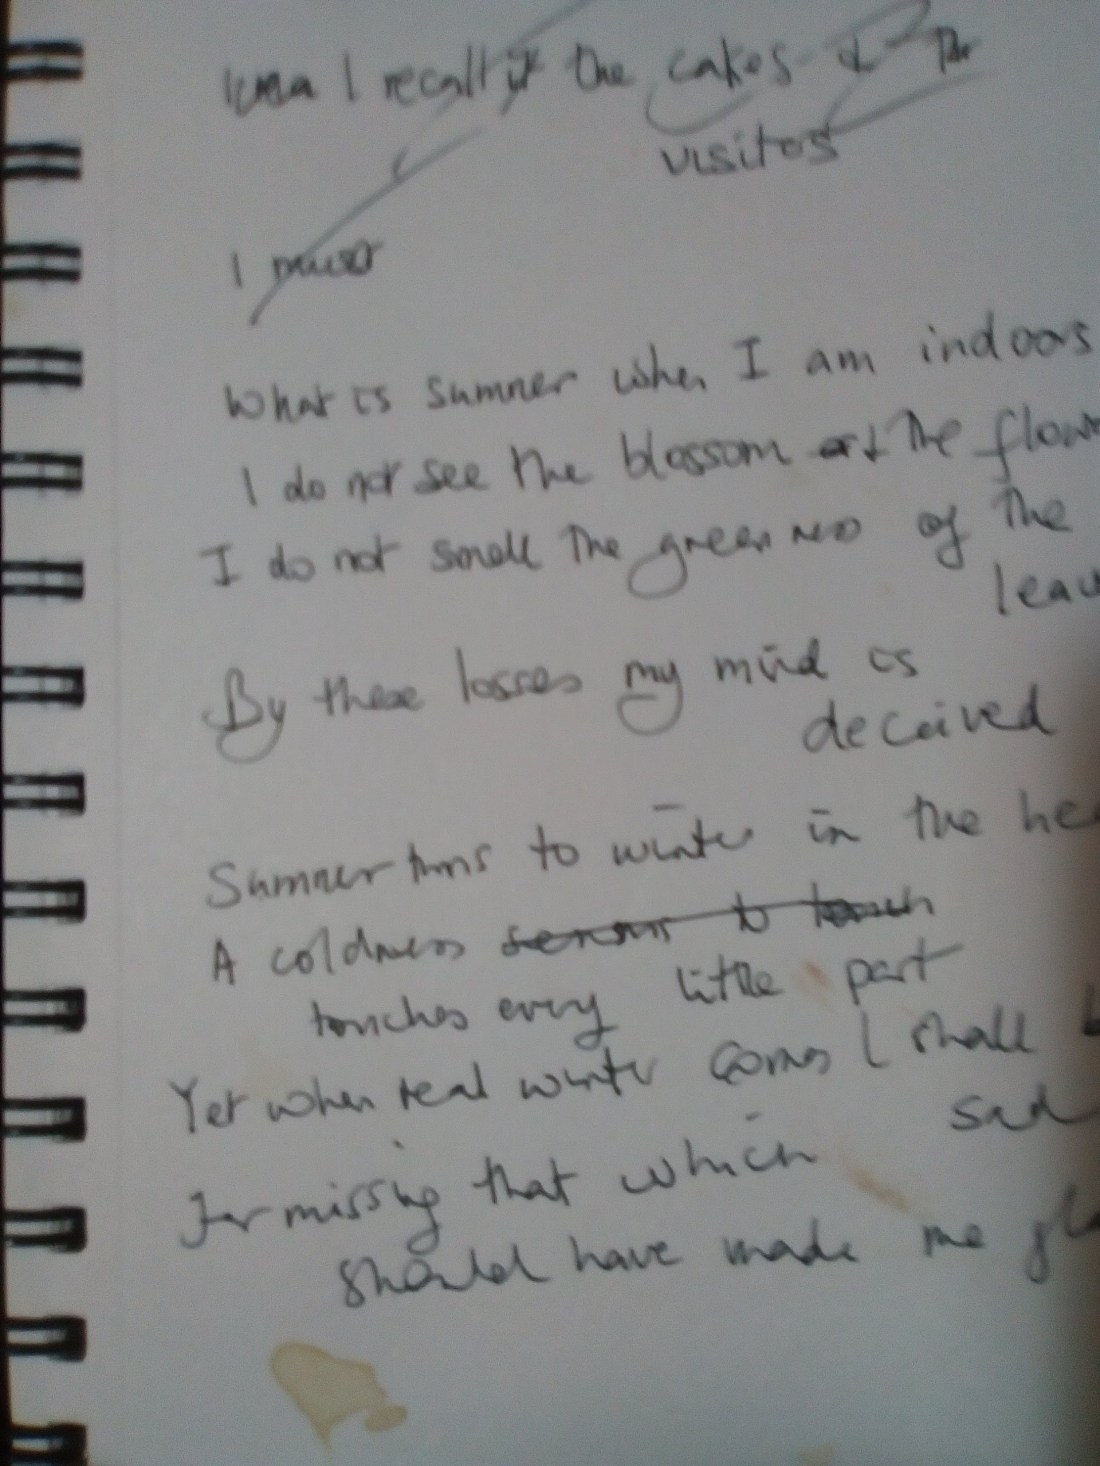 I recall the cakes & the
visitors
I
What is summer when I am indoors
I do not see the blossom the flow
I do not smell the greenness of the
leav
By these losses my mind is
deceived
Summer turns to winter in the hea
A coldness seems to touch
touches every little part
Yet when real winter comes I shall b
sad
For missing that which
should have made me gla